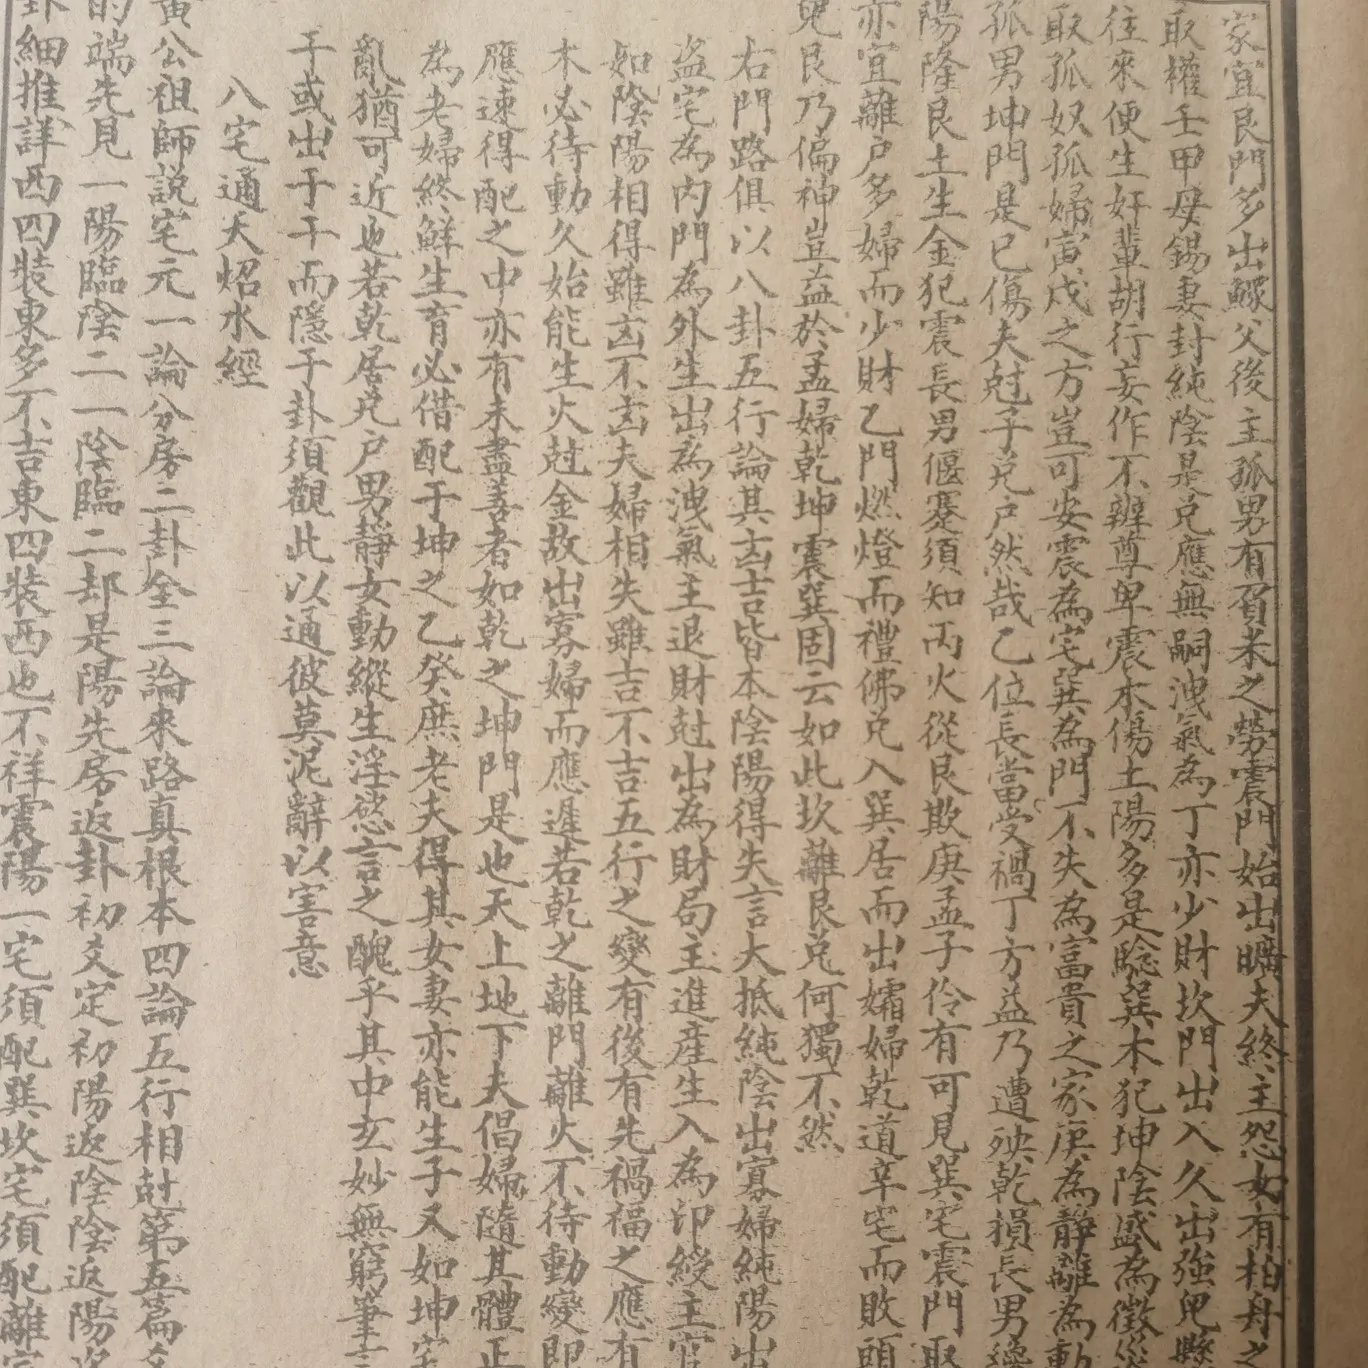 家宜艮門多出鰥父後主孤男有負未之勞震門始出曠夫終主怨女有柏舟之
取權壬甲母錫妻封純陰是兑應無嗣洩氣為丁亦少財坎門出入久出強兒縣
往來便生奸輩胡行妄作不辨尊卑震木傷土陽多是驗巽木犯坤陰盛為徵災
取孤奴孤婦寅戌之方豈可安震為宅巽為門不失為富貴之家庚為靜離為動
孤男坤門是已傷夫尅子兑戶然哉乙位長當受禍丁方益乃遭殃乾損長男
陽隆艮土生金犯震長男偃蹇須知丙火從艮欺庚孟子伶有可見巽宅震門取
亦宜離戶多婦而少財乙門燃燈而禮佛兑入巽居而出孀婦乾道辛宅而敗頭
兒艮乃偏神豈益於孟婦乾坤震巽固云如此坎離艮兑何獨不然
右門路俱以八卦五行論其㓙吉皆本陰陽得失言大抵純陰出寡婦純陽出
盜宅為內門為外生出為洩氣主退財尅出為財局主進產生入為印綬主官
如陰陽相得雖㓙不㓙夫婦相失雖吉不吉五行之變有後有先禍福之應有
木必待動久始能生火尅金故出寡婦而應遲若乾之離門離火不待動變即
應速得配之中亦有未盡善者如乾之坤門是也天上地下夫倡婦隨其體正
為老婦終鮮生育必借配于坤之乙癸庶老夫得其女妻亦能生子又如坤宅
亂猶可近也若乾居兑戶男靜女動縱生淫慾言之醜乎其中玄妙無窮筆
于或出于干而隱于卦須觀此以通彼莫泥辭以害意
八宅通天炤水經
黃公祖師說宅元一論分房二卦全三論來路真根本四論五行相尅第五篇
的端先見一陽臨陰二一陰臨二卦是陽先房返卦初爻定初陽返陰陰返陽
卦細推詳西四裝東多不吉東四裝西也不祥震陽一宅須配巽坎宅須配離